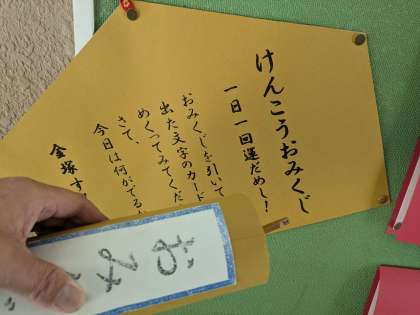 けんこうおみくじ
一日一回運だめし!
おみくじを引いて
出た文字のカード
めくってみてくだ
さて、
今日は何がでるか
金塚す
おみ